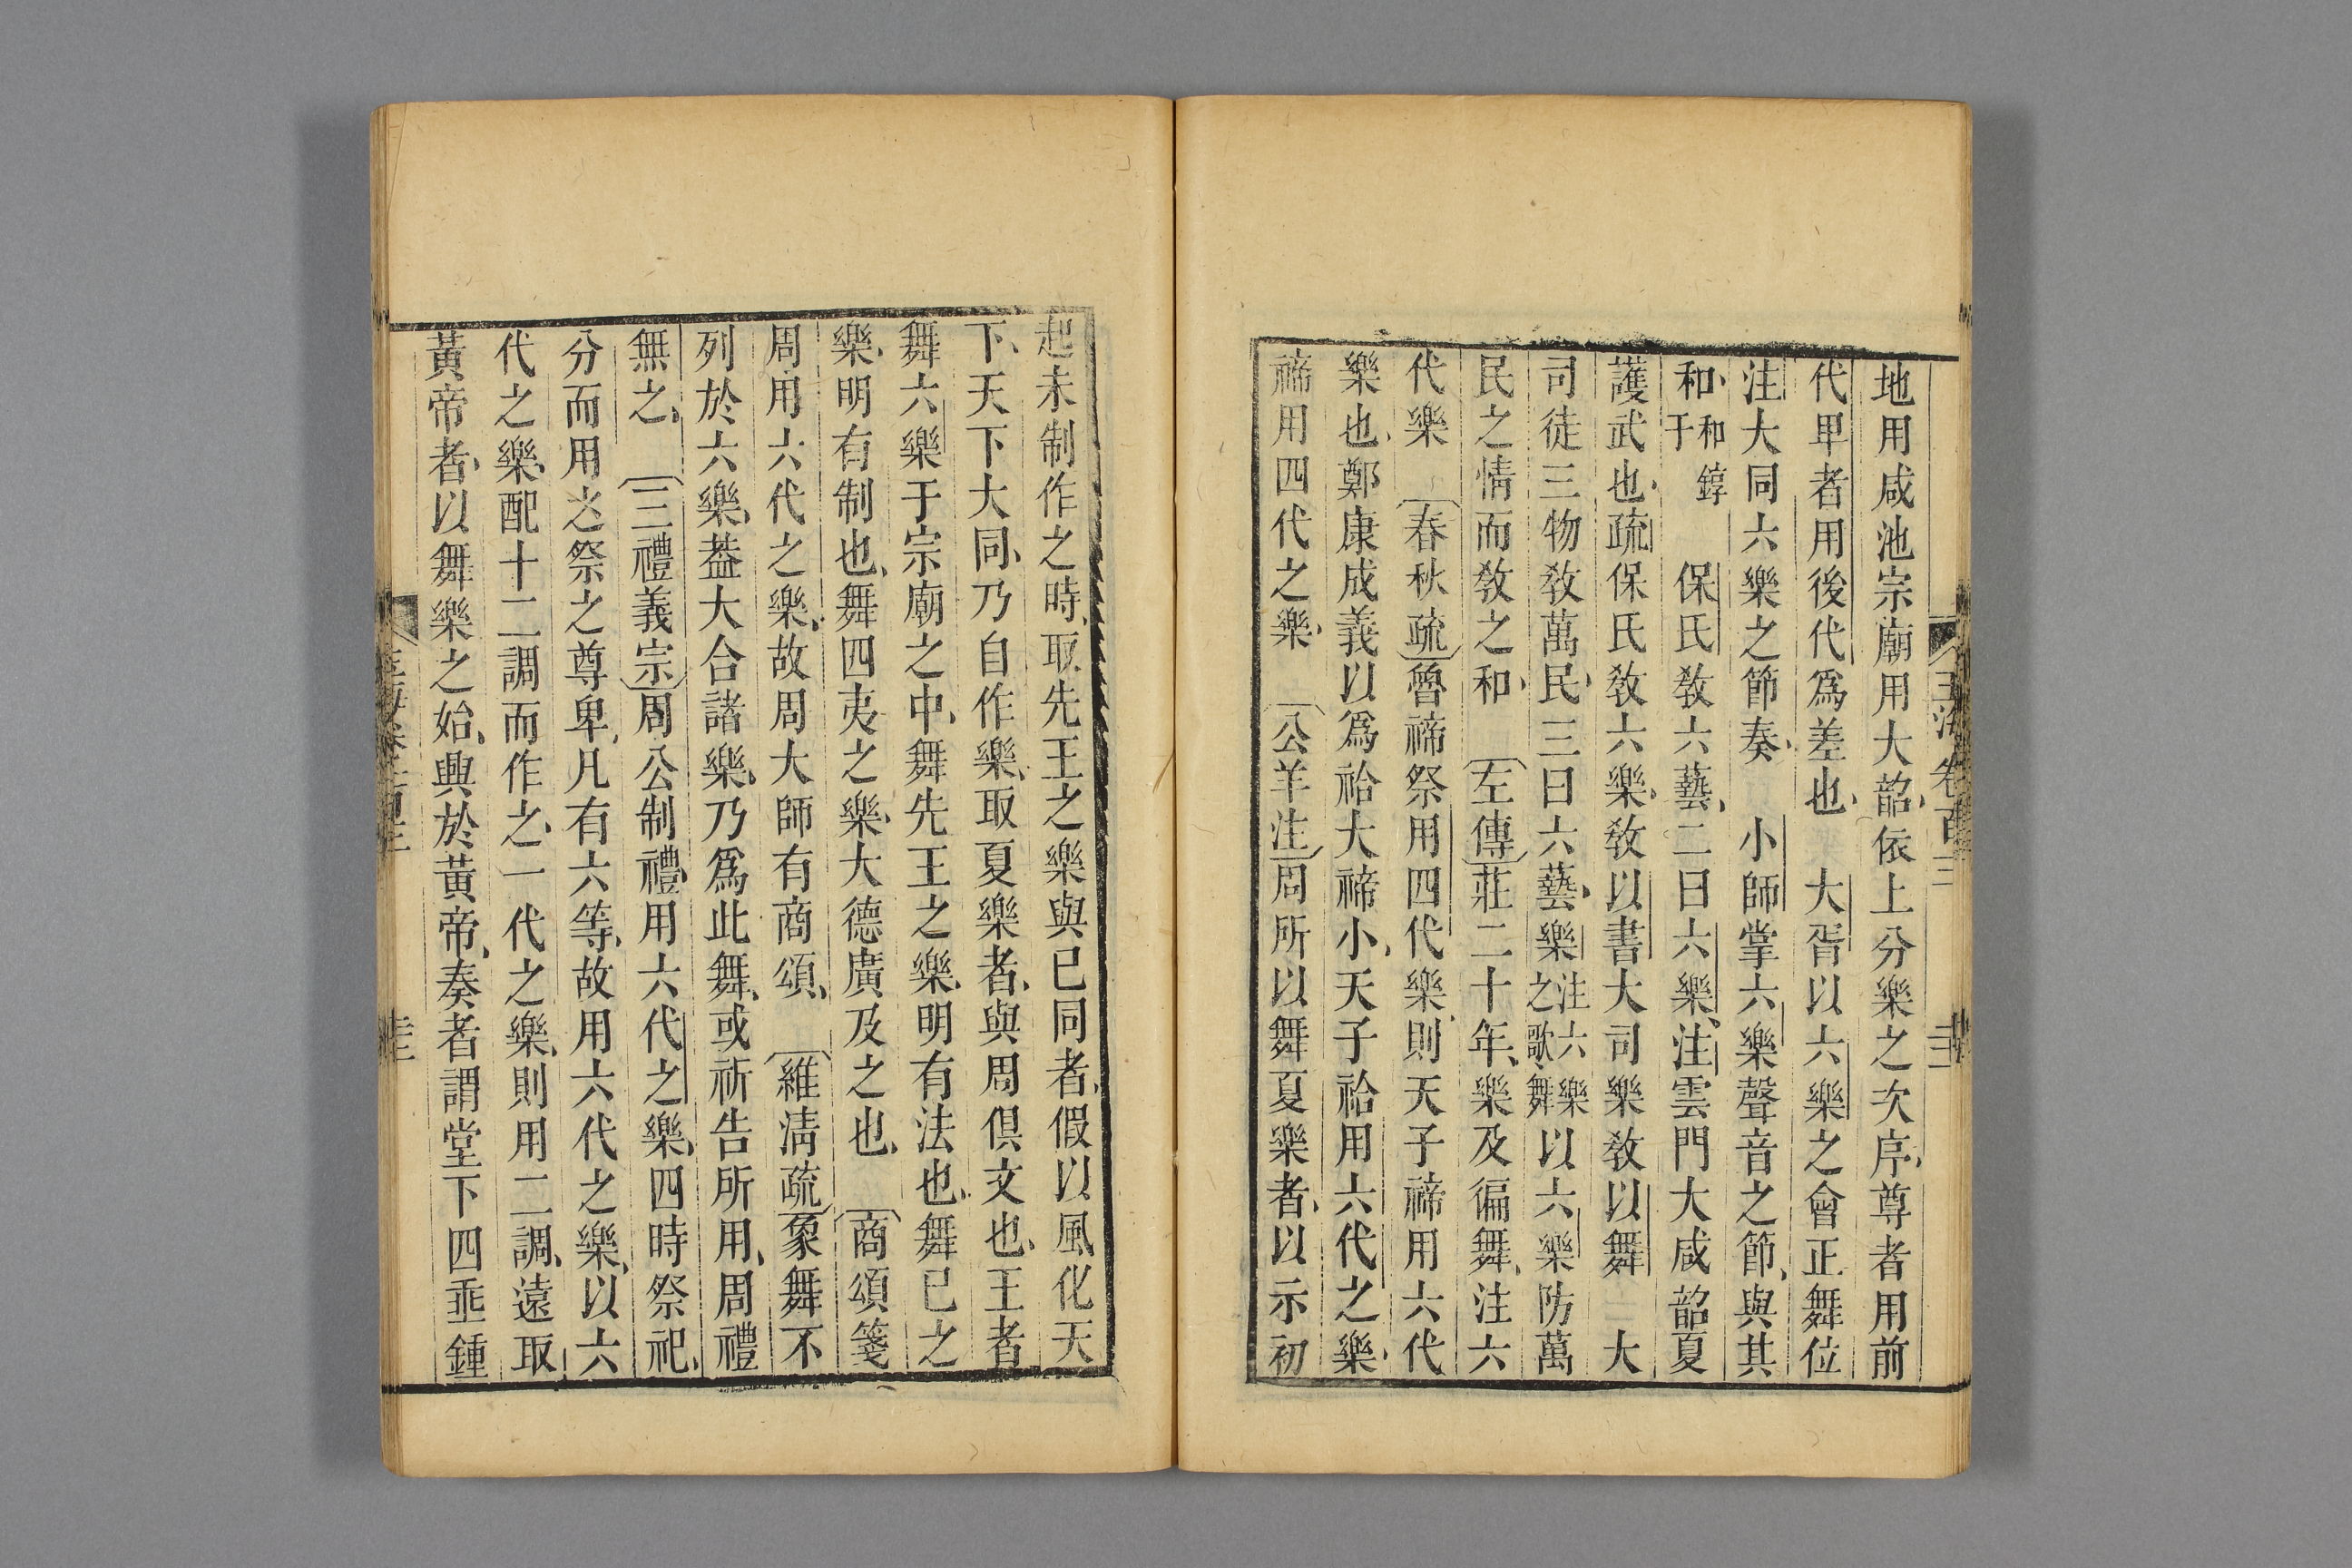 地用咸池宗廟用大韶依上分樂之次序尊者用前
代卑者用後代爲差也　大胥以六樂之會正舞位
注大同六樂之節奏　小師掌六樂聲音之節與其
和和錞于　保氏敎六藝二曰六樂注雲門大咸韶夏
護武也疏保氏敎六樂敎以書大司樂敎以舞　大
司徒三物敎萬民三曰六藝樂注六樂之歌舞以六樂防萬
民之情而敎之和　左傳莊二十年樂及徧舞注六
代樂　春秋疏魯禘祭用四代樂則天子禘用六代
樂也鄭康成義以爲祫大禘小天子祫用六代之樂
禘用四代之樂　公羊注周所以舞夏樂者以示初
起未制作之時取先王之樂與已同者假以風化天
下天下大同乃自作樂取夏樂者與周俱文也王者
舞六樂于宗廟之中舞先王之樂明有法也舞已之
樂明有制也舞四夷之樂大德廣及之也　商頌箋
周用六代之樂故周大師有商頌　維淸疏象舞不
列於六樂葢大合諸樂乃爲此舞或祈告所用周禮
無之　三禮義宗周公制禮用六代之樂四時祭祀
分而用之祭之尊卑凡有六等故用六代之樂以六
代之樂配十二調而作之一代之樂則用二調遠取
黃帝者以舞樂之始興於黃帝奏者謂堂下四垂鍾